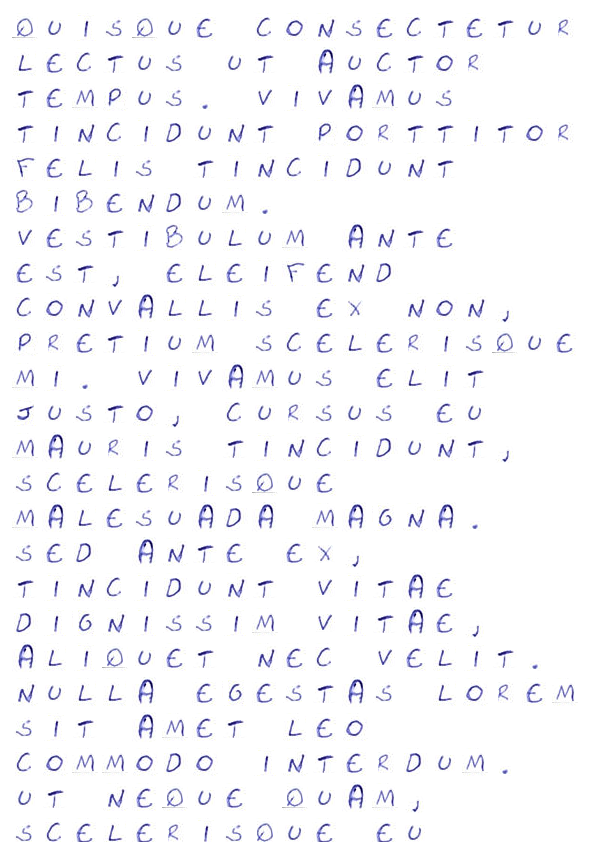 QUISQUE CONSECTETUR
LECTUS UT AUCTOR
TEMPUS. VIVAMUS
TINCIDUNT PORTTITOR
FELIS TINCIDUNT
BIBENDUM.
VESTIBULUM ANTE
EST, ELEIFEND
CONVALLIS EX NON,
PRETIUM SCELERISQUE
MI. VIVAMUS ELIT
JUSTO, CURSUS EU
MAURIS TINCIDUNT,
SCELERISQUE
MALESUADA MAGNA.
SED ANTE EX,
TINCIDUNT VITAE
DIGNISSIM VITAE,
ALIQUET NEC VELIT.
NULLA EGESTAS LOREM
SIT AMET LEO
COMMODO INTERDUM.
UT NEQUE QUAM,
SCELERISQUE EU